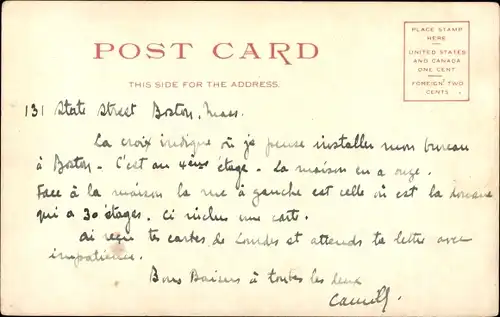 POST CARD
THIS SIDE FOR THE ADDRESS.
PLACE STAMP
HERE
UNITED STATES
AND CANADA
ONE CENT
FOREIGN TWO
CENTS
131 State Street Boston, Mass.
La croix indique où je pense installer mon bureau
à Boston - C'est au 4ème étage - La maison en a onze.
Face à la maison la rue à gauche est celle où est la douane
qui a 30 étages. Ci inclus une carte.
ai reçu tes cartes de Londes et attends ta lettre avec
impatience.
Bons Baisers à toutes les deux